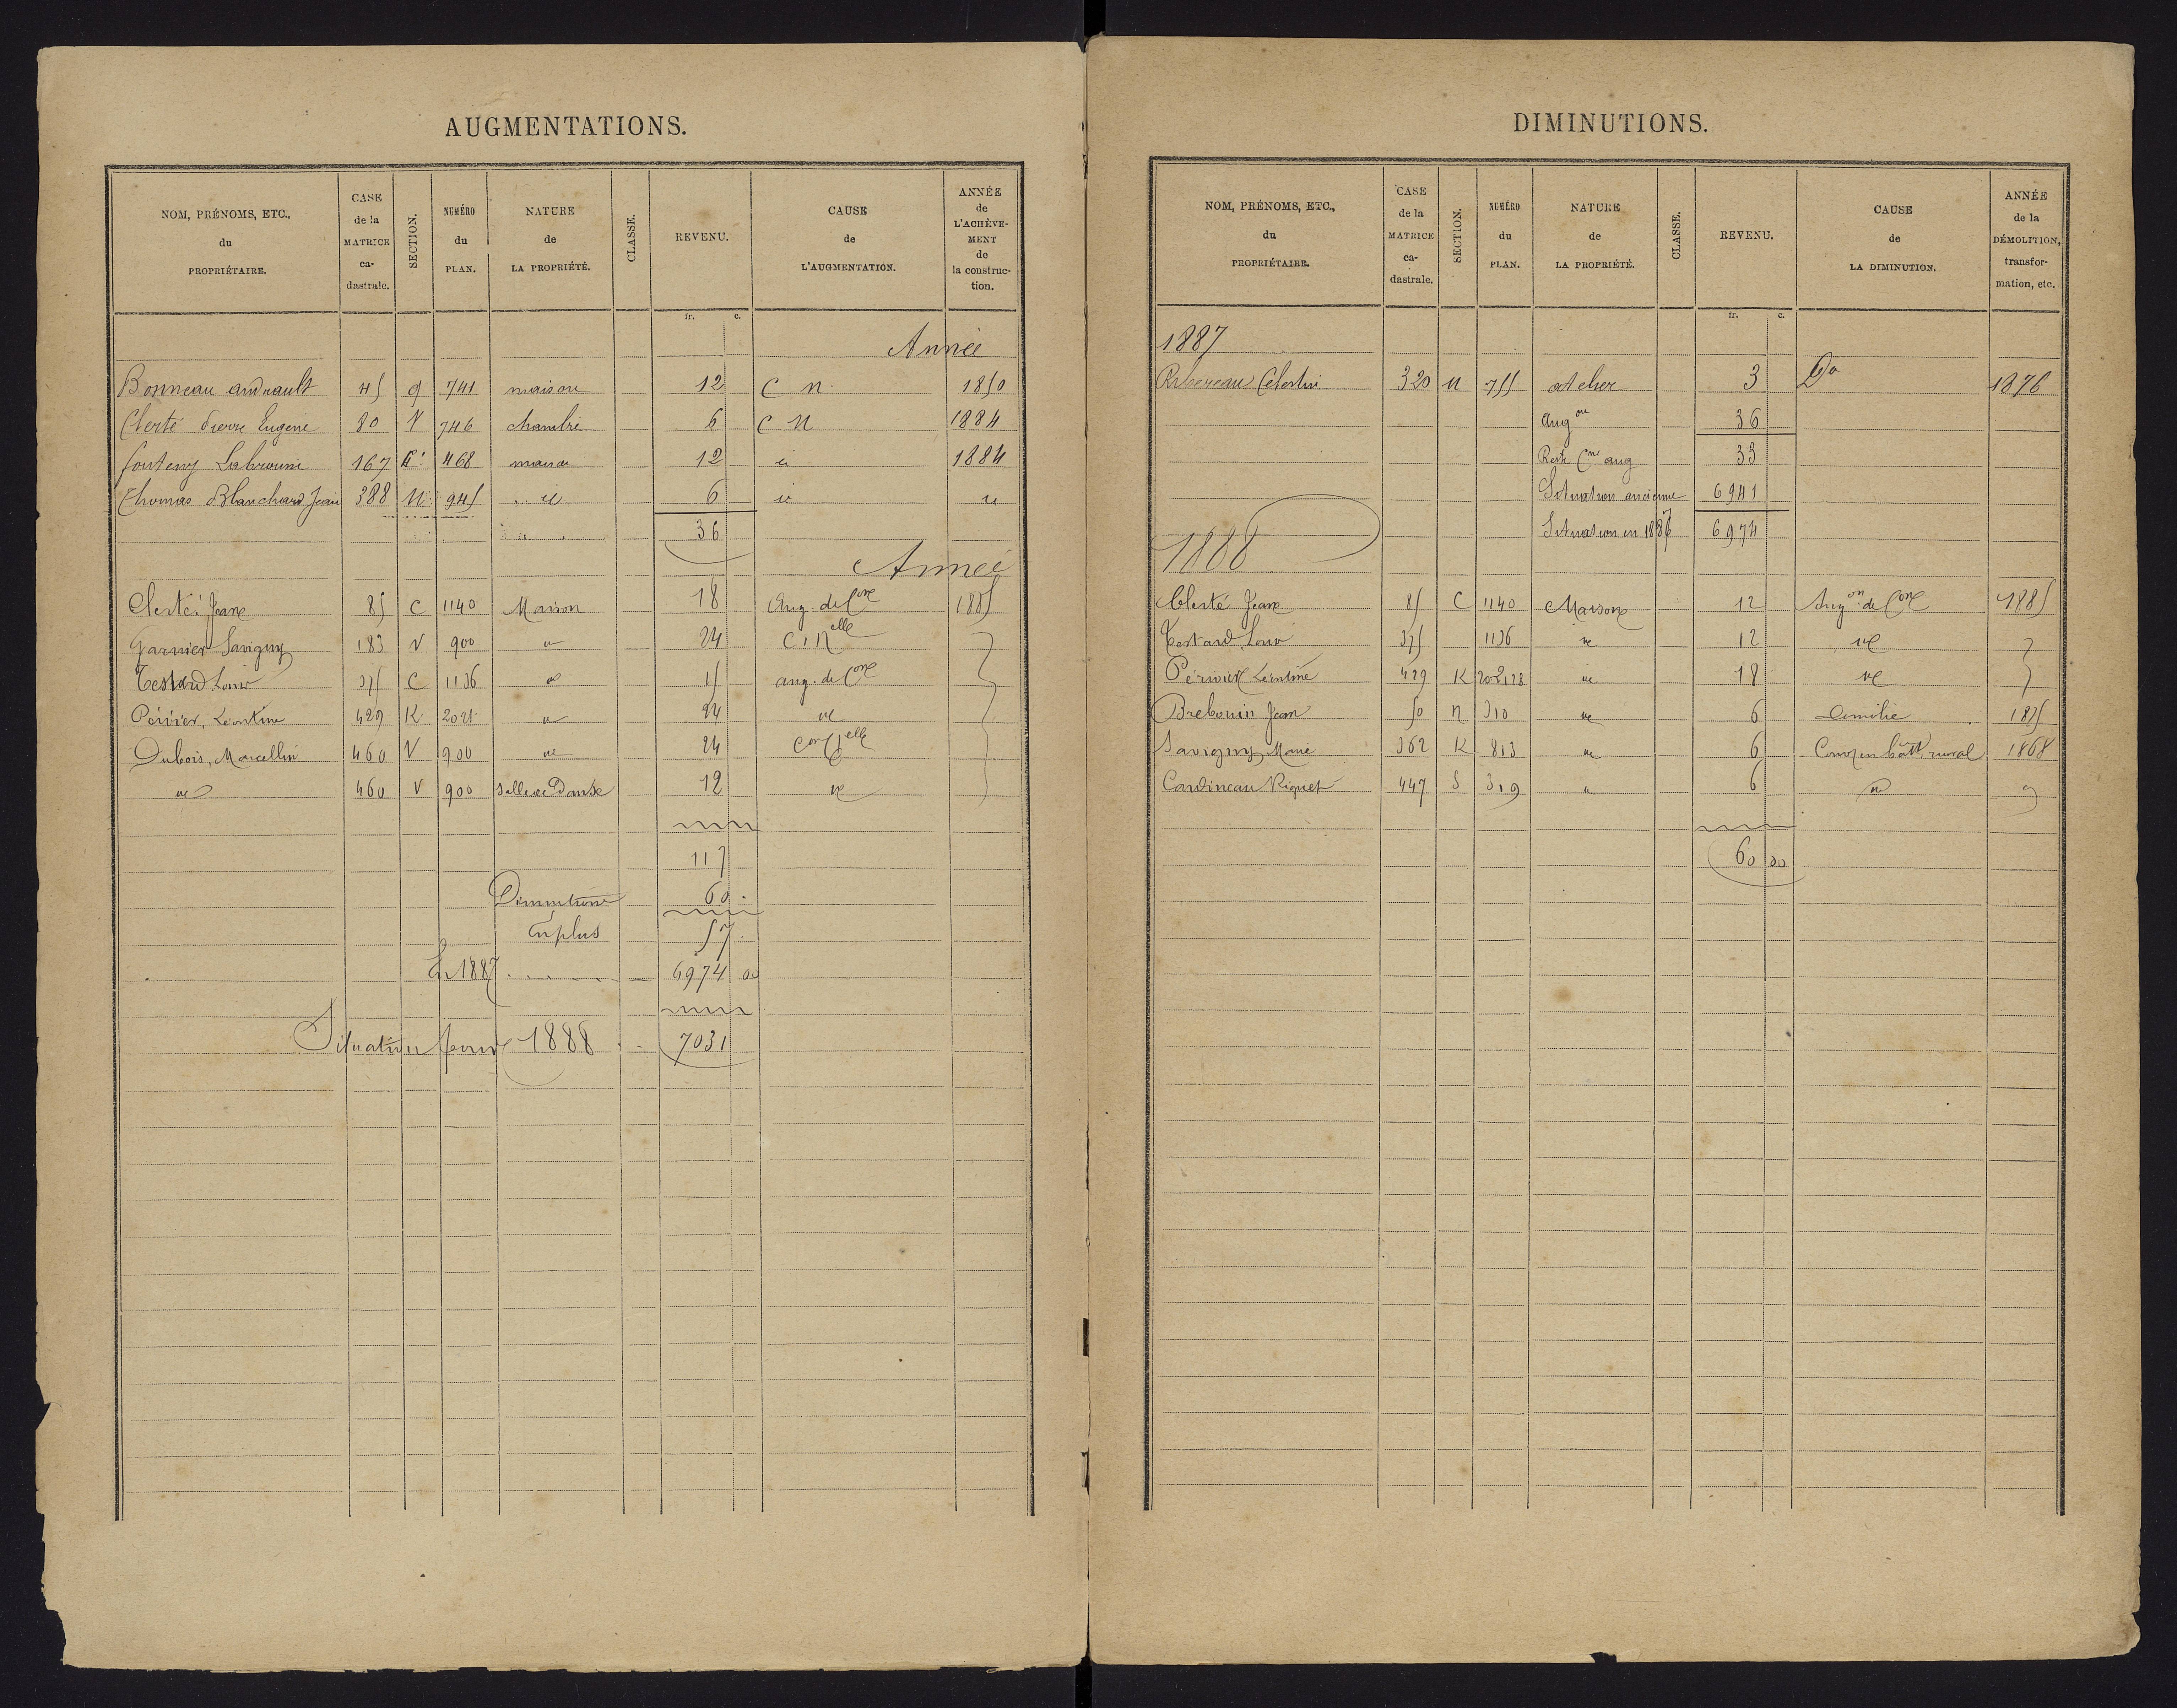 AUGMENTATIONS.
NOM, PRÉNOMS, ETC., du PROPRIÉTAIRE. CASE de la MATRICE ca- dastrale. SECTION. NUMÉRO du PLAN. NATURE de LA PROPRIÉTÉ. CLASSE. REVENU. CAUSE de L'AUGMENTATION. ANNÉE de L'ACHÈVE- MENT de la construc- tion.
fr. c.
Année
Bonneau andrault 45 g 741 maison 12 C n 1850
Clerté Pierre Eugene 80 V 746 chambre 6 C N 1884
167 468 12 1884
Thomas Blanchard Jean 388 N 945 id 6 id id
36
Année
Clerté Jean 85 C 1140 Maison 18 Aug. de Con 1885
Garnier Savigny 183 V 900 id 24 C. Nelle
Testard Louis 375 C 1136 id 15 aug. de Con
Périvier, Léontine 429 K 24 id
Dubois, Marcellin 460 V 900 id 24 Con Nelle
id 460 V 900 Salle de Danse 12 id
117
Diminutions 60
En plus 57
En 1887 6974 00
Situation pour 1888 7031
DIMINUTIONS.
NOM, PRÉNOMS, ETC., du PROPRIÉTAIRE. CASE de la MATRICE ca- dastrale. SECTION. NUMÉRO du PLAN. NATURE de LA PROPRIÉTÉ. CLASSE. REVENU. CAUSE de LA DIMINUTION. ANNÉE de la DÉMOLITION, transfor- mation, etc.
fr. c.
1887
Ribereau Celestin 320 N 755 atelier 3 Do 1876
Augon 36
Reste Cme aug 33
Situation ancienne 6941
Situation en 1887 6974
1888
Clerté Jean 85 C 1140 Maison 12 Augon de Con 1885
Testard Louis 375 1136 id 12 id
Périvier Léontine 429 K id 18 id
Brebouin Jean 50 n 310 id 6 Démolie 1875
Savigny Marie 362 K 813 id 6 Conv en bâtt rural 1868
Cardineau Riquet 447 S 319 id 6 id
60 00